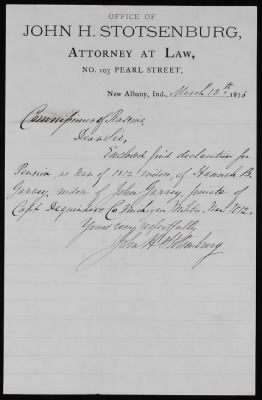 OFFICE OF
JOHN H. STOTSENBURG,
ATTORNEY AT LAW,
NO. 103 PEARL STREET.
New Albany, Ind., March 13th 1876
Commissioner of Pensions,
Dear Sir,
Enclosed find declaration for
Pension, as war of 1812 widow, of Hannah B.
Garvey, widow of John Garvey, private of
Capt Dequindre's Co Michigan Militia War 1812.
Yours very respectfully
John H Stotsenburg